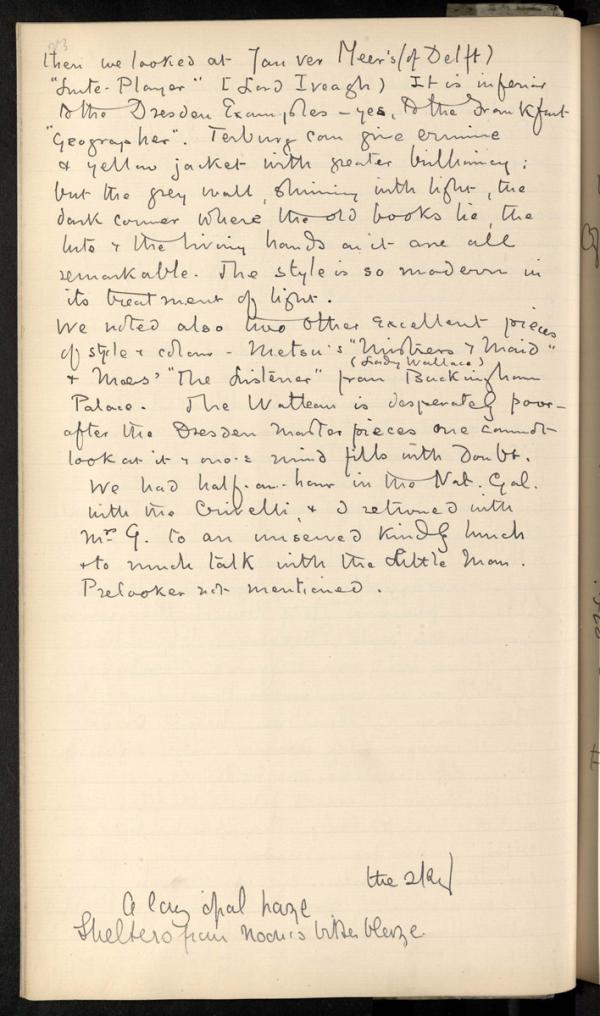 then we looked at Jan ver Meer's (of Delft)
"Lute-Player" [Lord Iveagh) It is inferior
to the Dresden Examples – yes, to the Frankfurt
"Geographer". Terburg can give ermine
& yellow jacket with greater brilliancy;
but the grey wall, shining with light, the
dark corner where the old books lie, the
lute & the living hands on it are all
remarkable. The style is so modern in
its treatment of light.
We noted also two other excellent pieces
of style & colour – Metsu's "Mistress & Maid"
(Lady Wallace)
& Maes' "The Listener" from Buckingham
Palace. The Watteau is desperately poor –
after the Dresden master pieces one cannot
look at it & one's mind fills with Doubt.
We had half-an-hour in the Nat. Gal.
with the Crivelli, & I returned with
Mrs G. to an kindly lunch
& to much talk with the Little Man.
Prelooker not mentioned.
the sky
A lazy opal haze
Shelters from noon's bitter bleaze